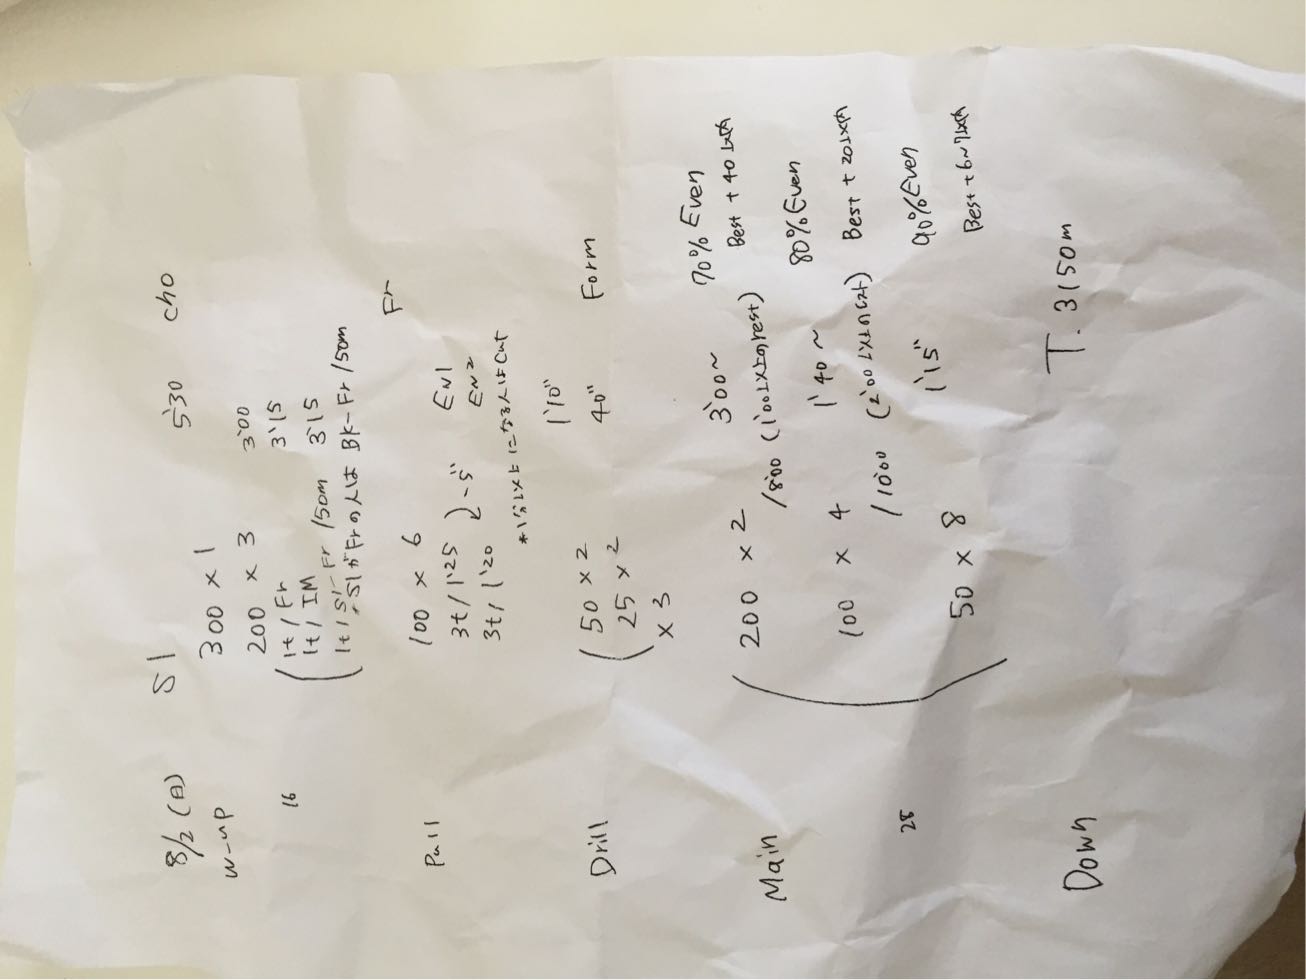 8/2(日) S1
W-up 300 × 1 5'30 cho
200 × 3 3'00
16 1t/Fr 3'15
1t/IM 3'15
1t/S1-Fr/50m
*S1がFrの人は BK-Fr/50m
Pull 100 × 6 Fr
3t/1'25 EN1
3t/1'20 -5" EN2
*1分以上になる人はcut
Drill 50 × 2 1'10"
25 × 2 40" Form
× 3
Main 200 × 2 3'00~ 70% Even
/8'00 (1'00以上のrest) Best + 40以内
100 × 4 1'40~ 80% Even
/10'00 (2'00以上のrest) Best + 20以内
28 50 × 8 1'15" 90% Even
Best + 6~7以内
Down T. 3150m